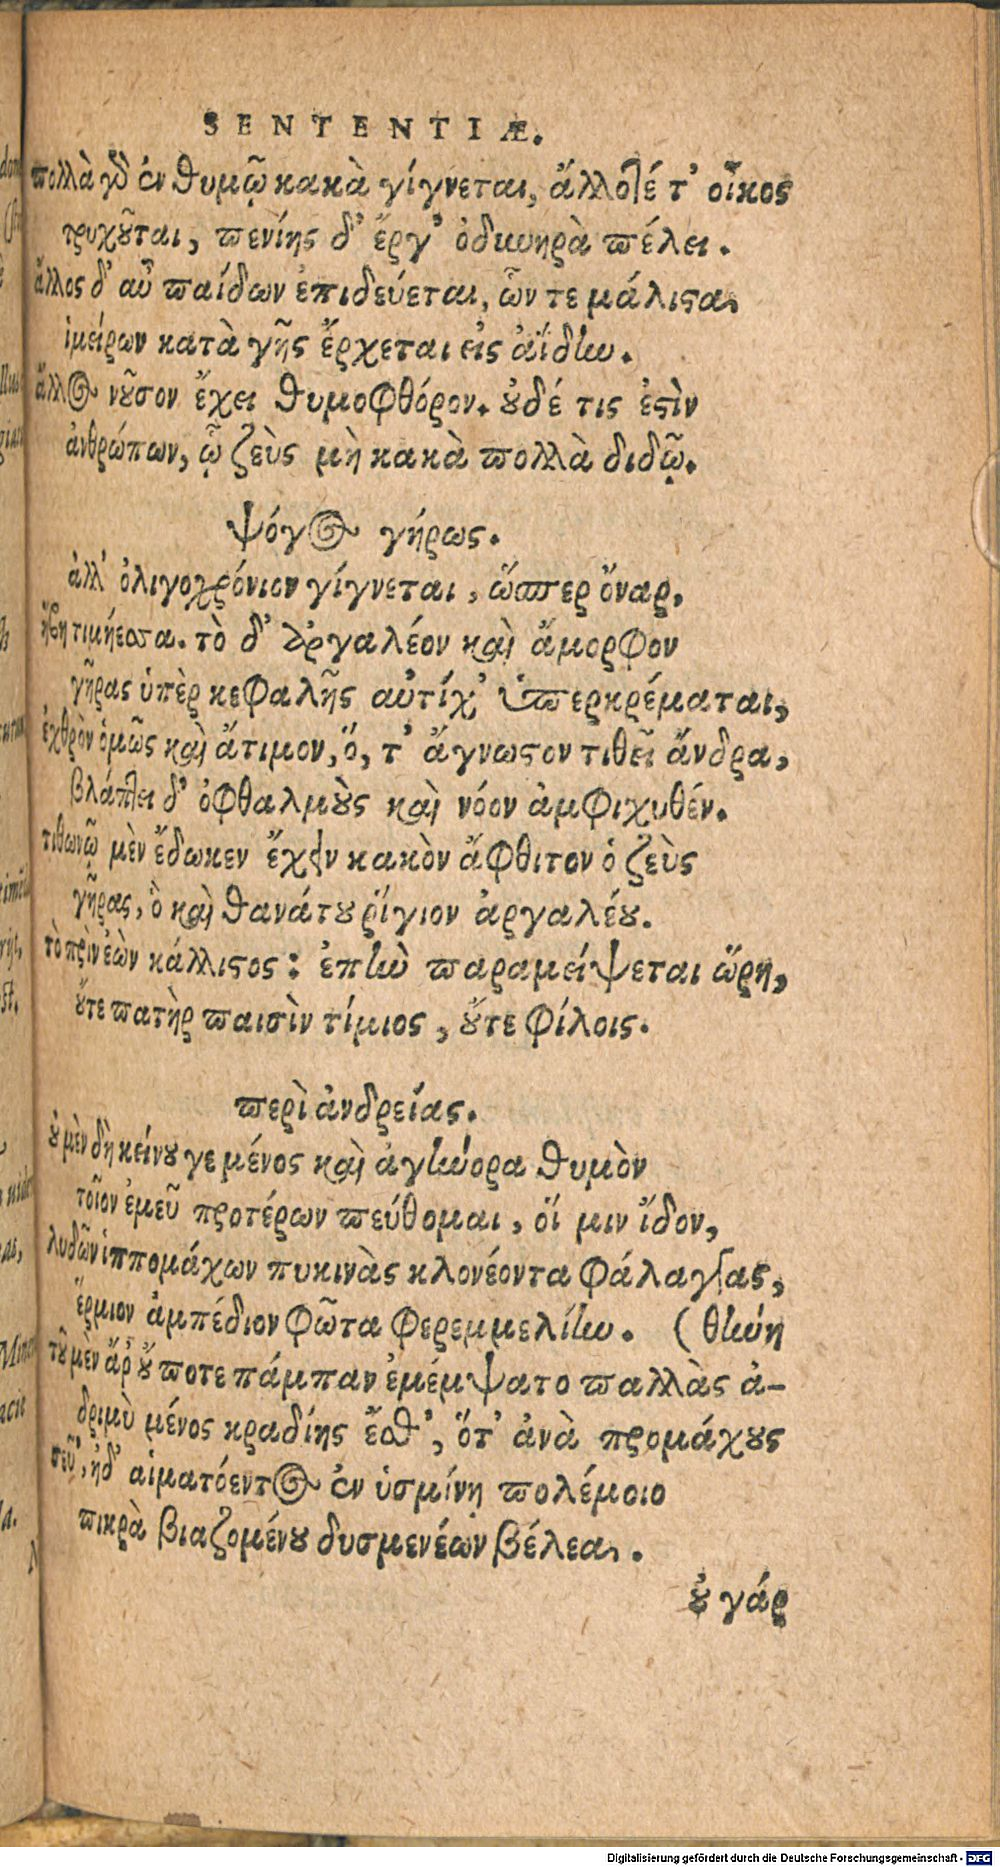 SENTENTIÆ.
πολλὰ γὸ ἐν θυμῷ κακὰ γίγνεται, ἄλλοτέ τ’ οἶκος
τρυχοῦται, πενίης δ’ ἔργ’ ὀδυνηρὰ πέλει.
ἄλλος δ’ αὖ παίδων ἐπιδεύεται, ὧν τε μάλιστα
ἱμείρων κατὰ γῆς ἔρχεται εἰς ἀΐδην.
ἄλλος νοῦσον ἔχει θυμοφθόρον. οὐδέ τις ἐστὶν
ἀνθρώπων, ᾧ ζεὺς μὴ κακὰ πολλὰ διδῷ.
ψόγος γήρως.
ἀλλ’ ὀλιγοχρόνιον γίγνεται, ὥσπερ ὄναρ,
ἥβη τιμήεσσα. τὸ δ’ ἀργαλέον καὶ ἄμορφον
γῆρας ὑπὲρ κεφαλῆς αὐτίχ’ ὑπερκρέμαται,
ἐχθρὸν ὁμῶς καὶ ἄτιμον, ὅ, τ’ ἄγνωστον τιθεῖ ἄνδρα,
βλάπτει δ’ ὀφθαλμοὺς καὶ νόον ἀμφιχυθέν.
τιθωνῷ μὲν ἔδωκεν ἔχειν κακὸν ἄφθιτον ὁ ζεὺς
γῆρας, ὃ καὶ θανάτου ῥίγιον ἀργαλέου.
τὸ πρὶν ἐὼν κάλλιστος: ἐπὴν παραμείψεται ὥρη,
οὔτε πατὴρ παισὶν τίμιος, οὔτε φίλοις.
περὶ ἀνδρείας.
οὐ μὲν δὴ κείνου γε μένος καὶ ἀγήνορα θυμὸν
τοῖον ἐμεῦ προτέρων πεύθομαι, οἵ μιν ἴδον,
λυδῶν ἱππομάχων πυκινὰς κλονέοντα φάλαγγας,
ἕρμιον ἀμπέδιον φῶτα φερεμμελίην. (θήνη
τοῦ μὲν ἄρ’ οὔποτε πάμπαν ἐμέμψατο παλλὰς ἀ-
δριμὺ μένος κραδίης ἔσθ’, ὅτ’ ἀνὰ προμάχους
σεῦ’, ἠδ’ αἱματόεντος ἐν ὑσμίνῃ πολέμοιο
πικρὰ βιαζομένου δυσμενέων βέλεα.
οὐ γάρ
Digitalisierung gefördert durch die Deutsche Forschungsgemeinschaft - DFG